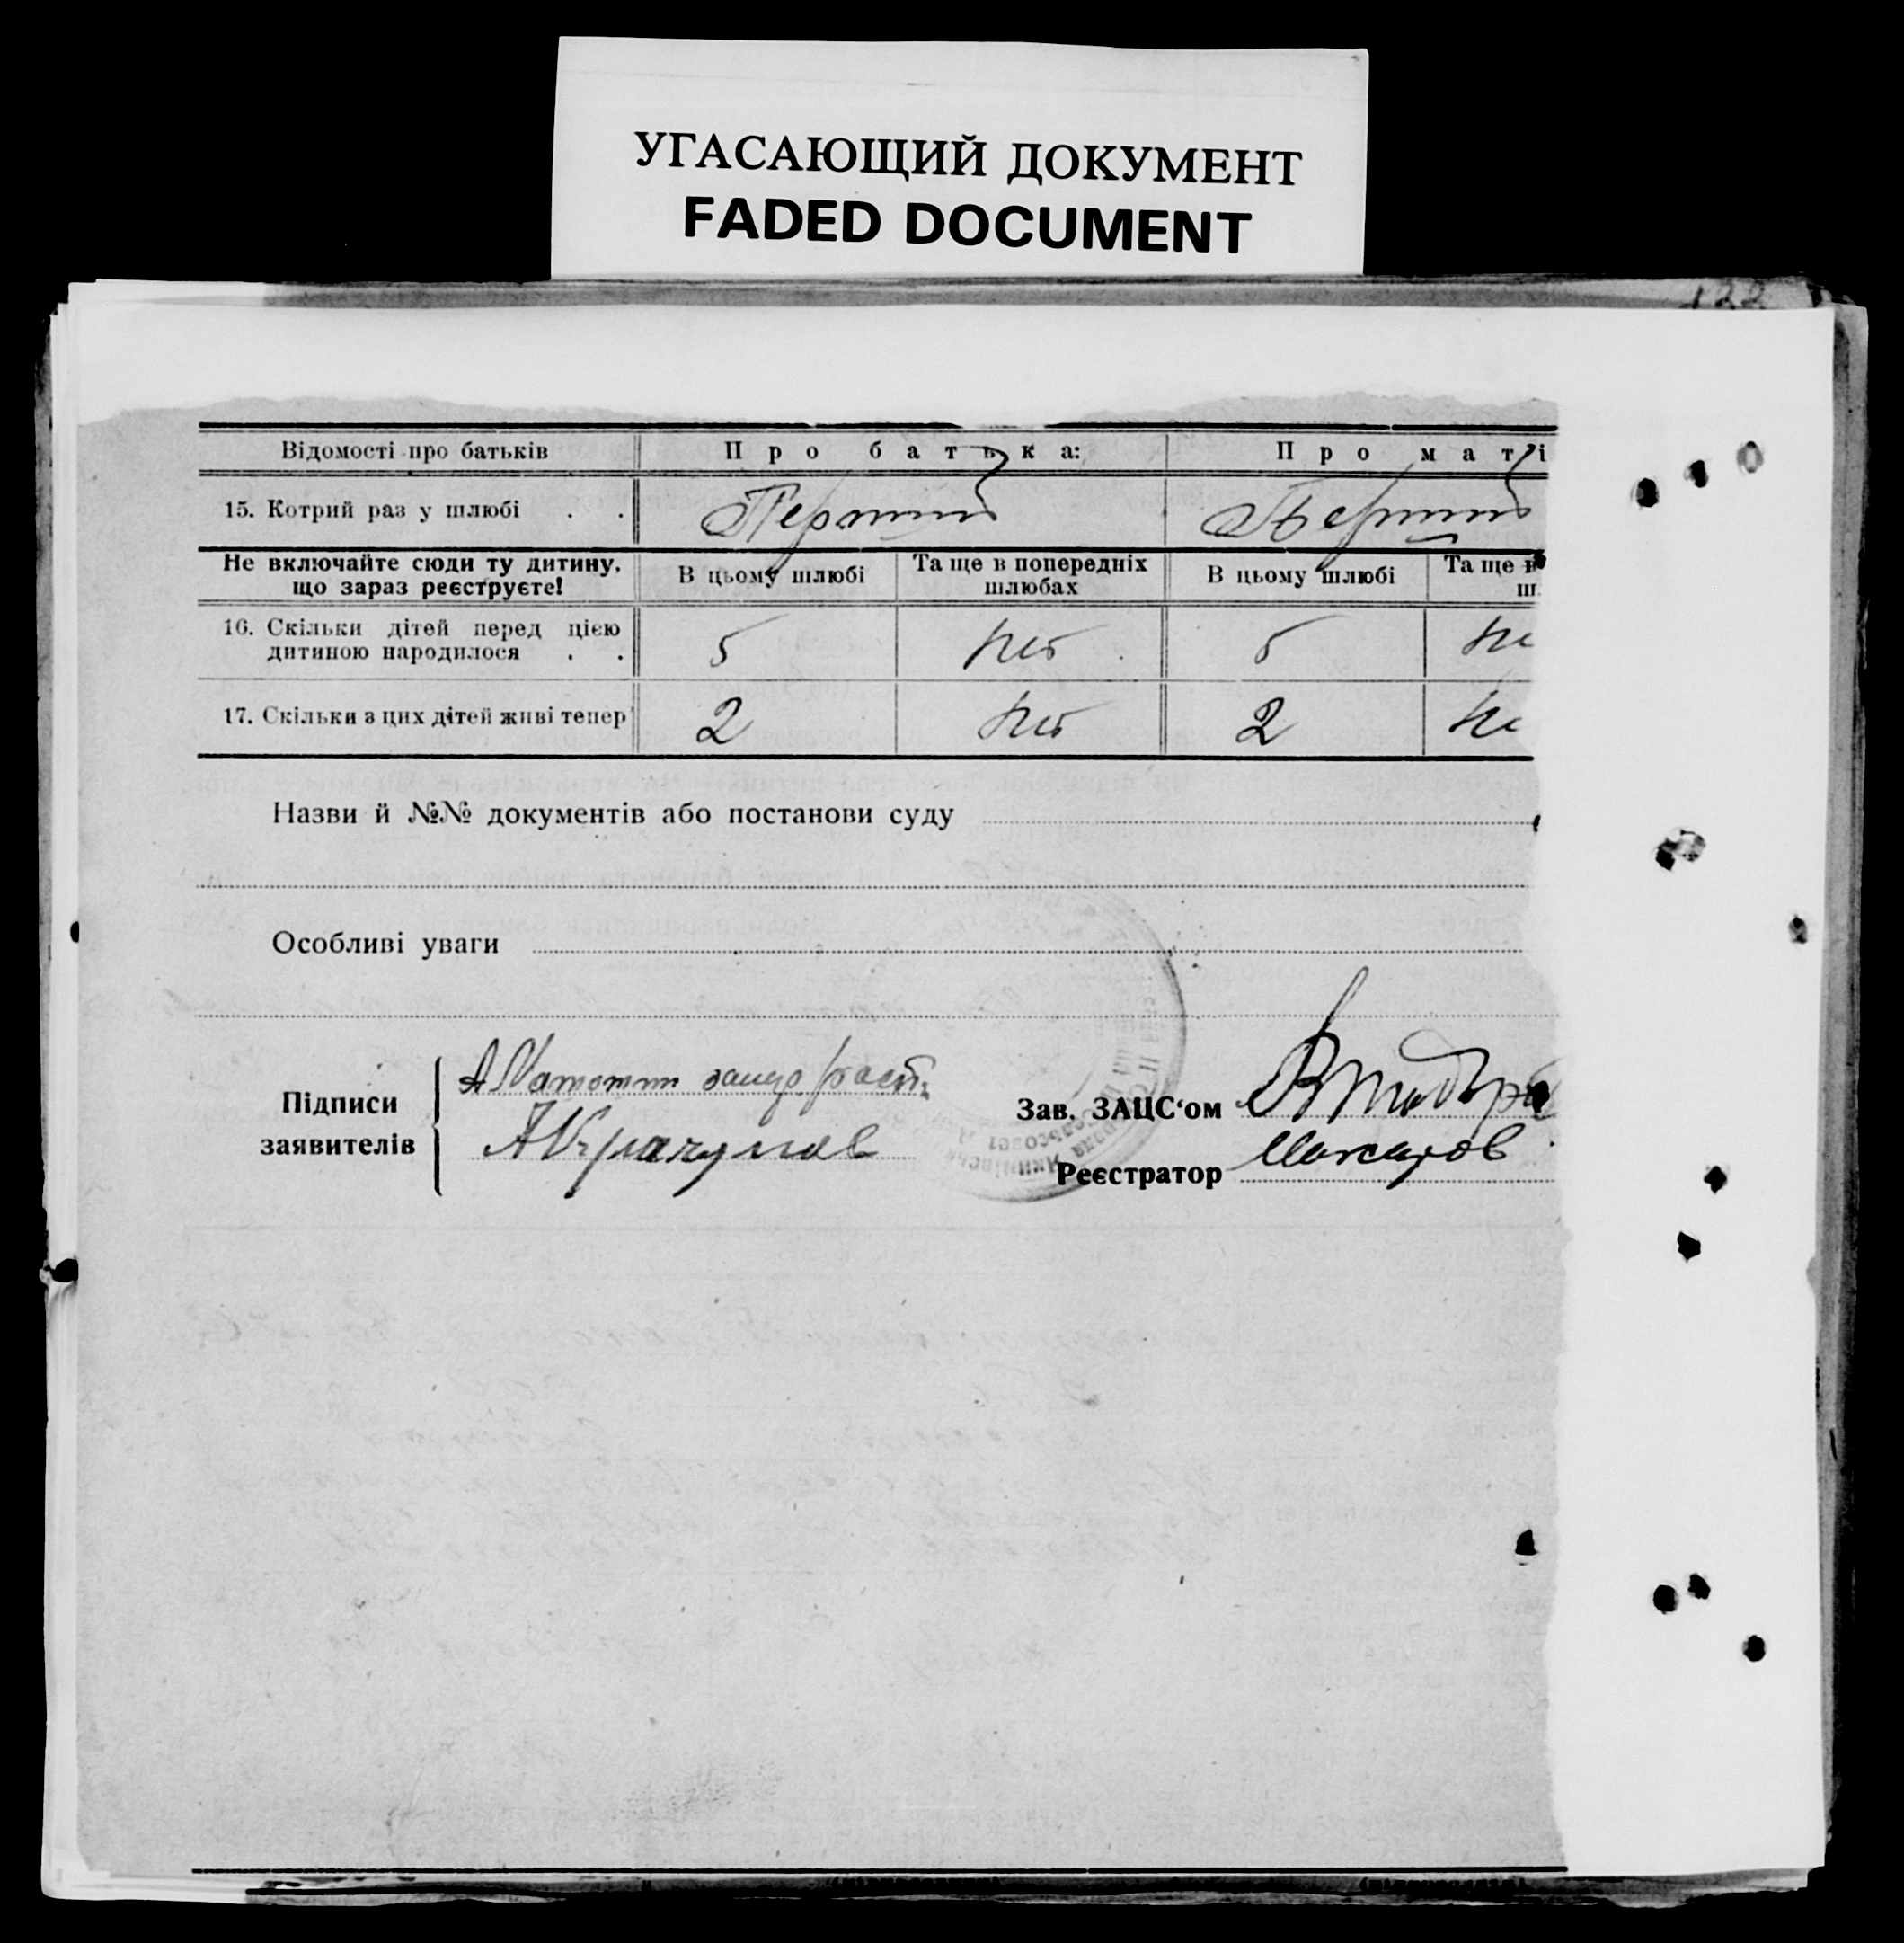 УГАСАЮЩИЙ ДОКУМЕНТ
FADED DOCUMENT
Відомості про батьків Про батька: Про маті
15. Котрий раз у шлюбі . . Перший Перший
Не включайте сюди ту дитину, що зараз реєструєте! В цьому шлюбі Та ще в попередніх шлюбах В цьому шлюбі Та ще в ш
16. Скільки дітей перед цією дитиною народилося . . 5 Нет 5 Не
17. Скільки з цих дітей живі тепер 2 Нет 2 Не
Назви й №№ документів або постанови суду
Особливі уваги
Підписи заявителів
А Карачунов
Зав. ЗАЦС‘ом
Реєстратор Макаров